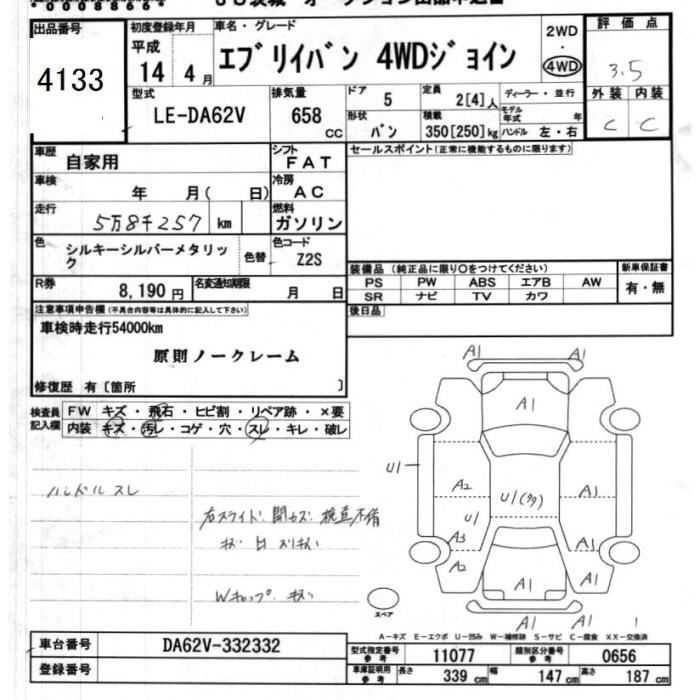 出品番号
4133
初度登録年月
平成
14年 4月
車名・グレード
エブリイバン 4WDジョイン
2WD
・
4WD
評価点
3.5
外装 内装
C C
型式
LE-DA62V
排気量
658
cc
ドア
5
形状
バン
定員
2[4]人
積載
350[250]kg
ディーラー・並行
モデル年式 年
ハンドル 左・右
車歴
自家用
シフト
FAT
車検
年 月( 日)
冷房
AC
走行
5万8千257 km
燃料
ガソリン
色
シルキーシルバーメタリック
色替
色コード
Z2S
R券
8,190円
名変通知期限
月 日
セールスポイント(正常に機能するものに限ります)
装備品(純正品に限り○をつけてください)
PS PW ABS エアB AW
SR ナビ TV カワ
新車保証書
有・無
後日品
注意事項申告欄(不具合内容等は具体的に記入して下さい)
車検時走行54000km
原則ノークレーム
修復歴 有〔箇所 〕
検査員記入欄
FW キズ・飛石・ヒビ割・リペア跡・×要
内装 キズ・汚レ・コゲ・穴・スレ・キレ・破レ
ハンドルスレ
右スライド
Wキャップ
A1 A1
A1
U1
A2
U1
U1(多)
A1
A3
A2
A1
A1
A1
A1
1
スペア
A－キズ E－エクボ U－凹み W－補修跡 S－サビ C－腐食 XX－交換済
車台番号
DA62V-332332
登録番号
型式指定番号
参考
11077
類別区分番号
参考
0656
車庫証明用
参考
長さ
339cm
幅
147cm
高さ
187cm